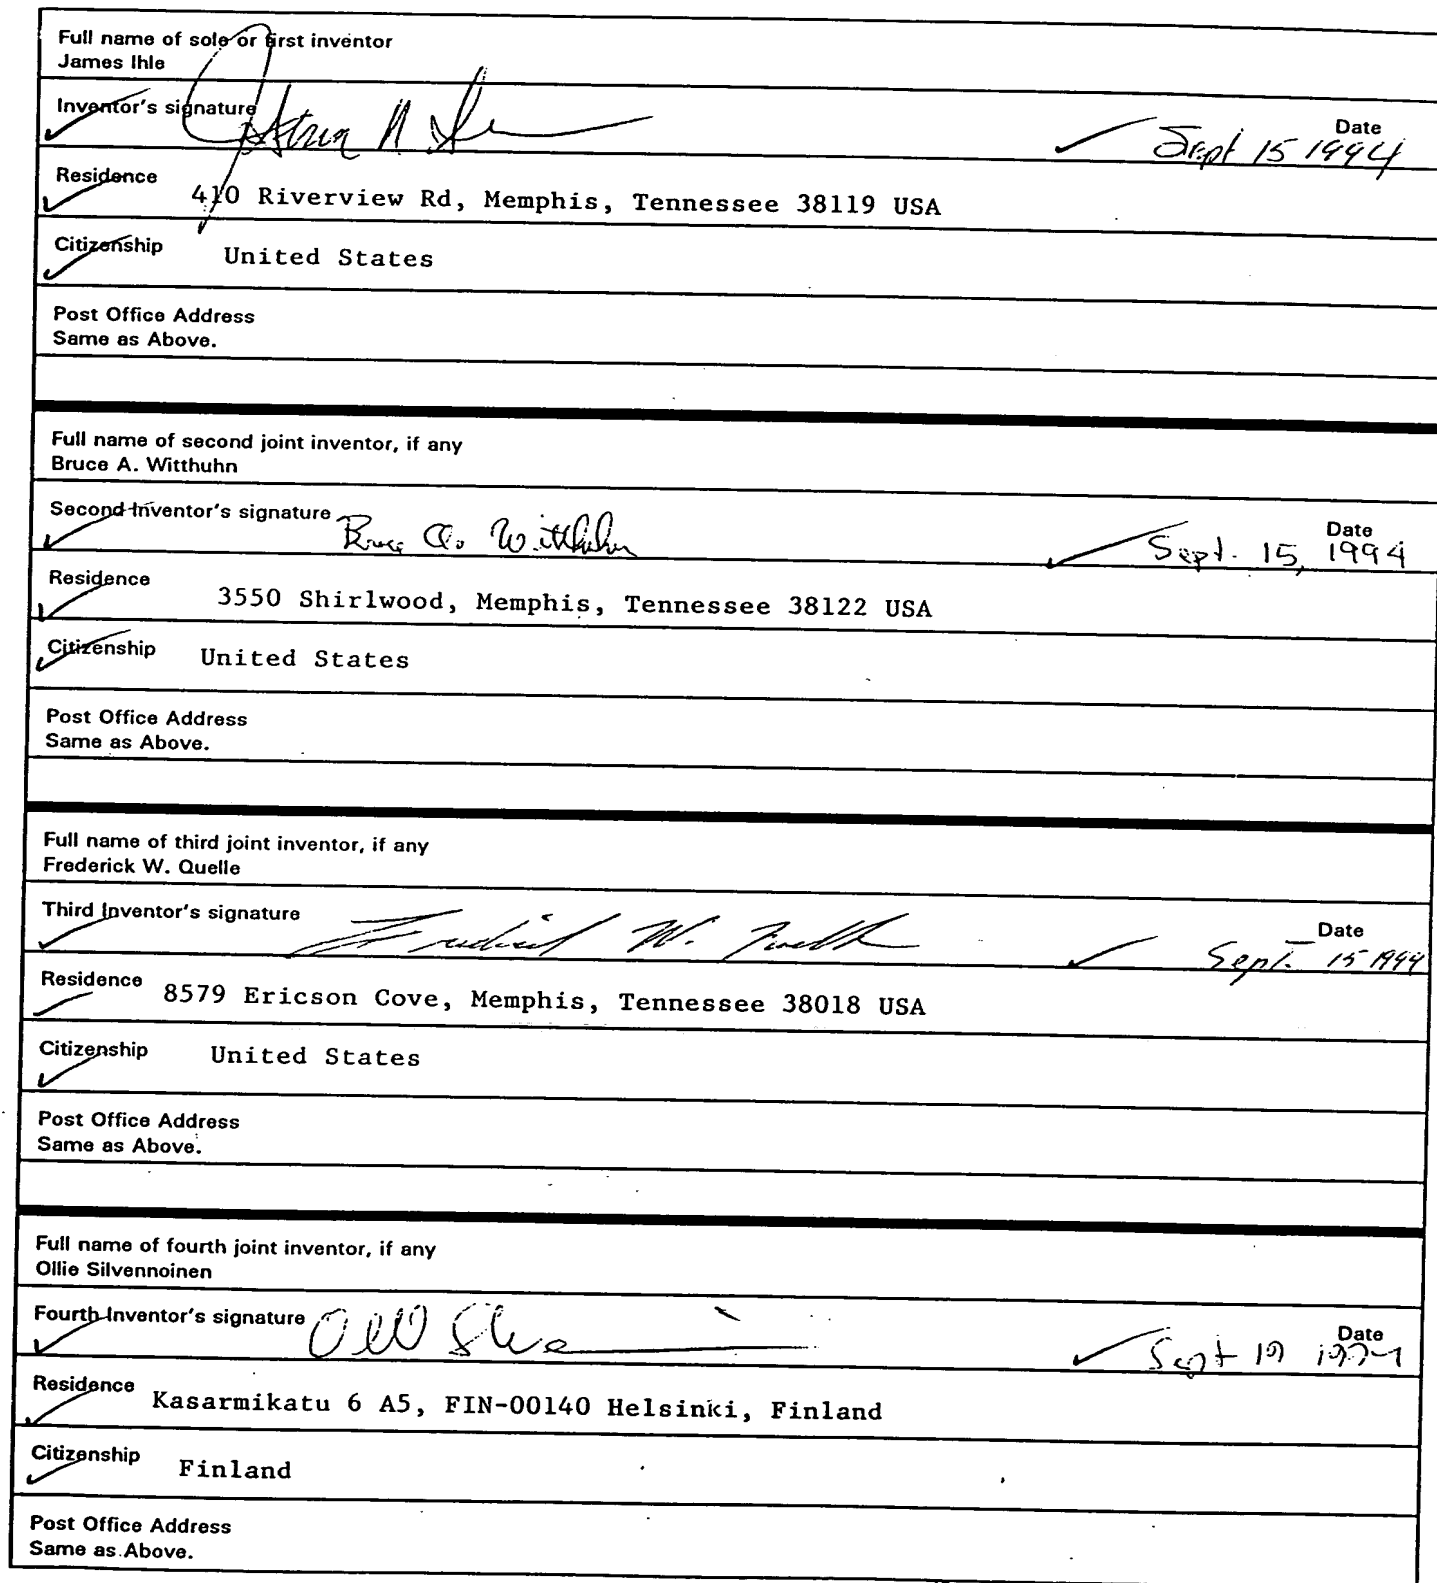 Full name of sole or first inventor
James Ihle
Inventor's signature
Date
Sept 15 1994
Residence 410 Riverview Rd, Memphis, Tennessee 38119 USA
Citizenship United States
Post Office Address
Same as Above.
Full name of second joint inventor, if any
Bruce A. Witthuhn
Second Inventor's signature Bruce A. Witthuhn
Date
Sept. 15, 1994
Residence 3550 Shirlwood, Memphis, Tennessee 38122 USA
Citizenship United States
Post Office Address
Same as Above.
Full name of third joint inventor, if any
Frederick W. Quelle
Third Inventor's signature Frederick W. Quelle
Date
Sept. 15 1994
Residence 8579 Ericson Cove, Memphis, Tennessee 38018 USA
Citizenship United States
Post Office Address
Same as Above.
Full name of fourth joint inventor, if any
Ollie Silvennoinen
Fourth Inventor's signature
Date
Sept 19 1994
Residence Kasarmikatu 6 A5, FIN-00140 Helsinki, Finland
Citizenship Finland
Post Office Address
Same as Above.